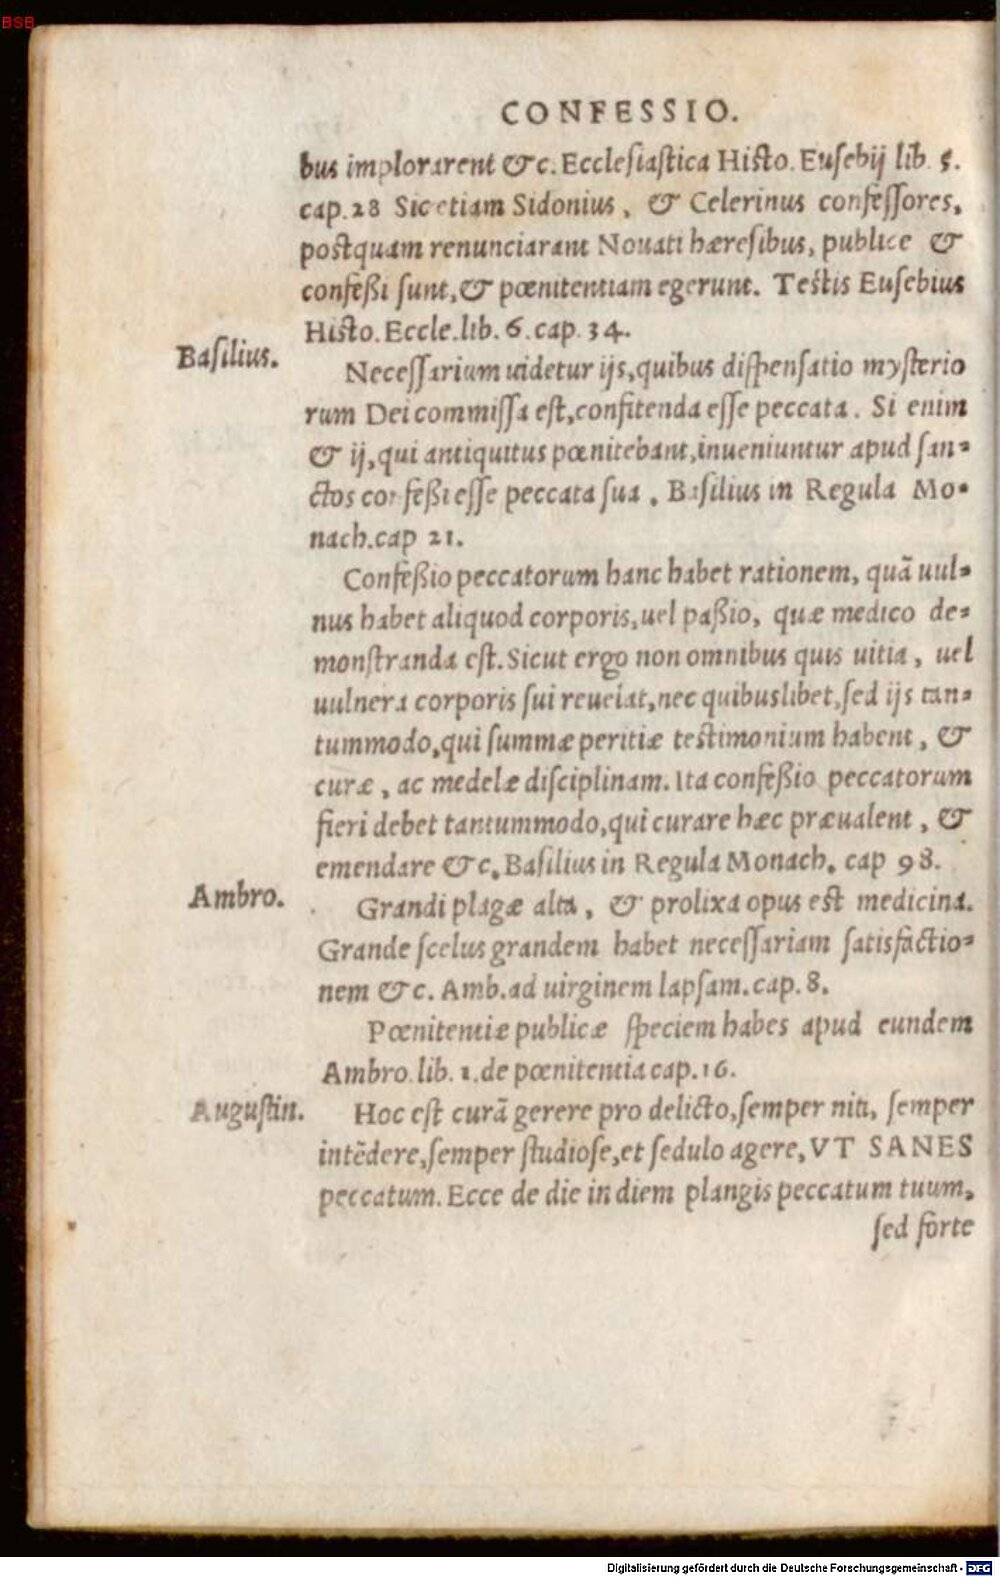 BSB
CONFESSIO.
bus implorarent &c. Ecclesiastica Histo. Eusebij lib. 5.
cap. 28 Sic etiam Sidonius, & Celerinus confessores,
postquam renunciarant Nouati hæresibus, publice &
confeßi sunt, & pœnitentiam egerunt. Testis Eusebius
Histo. Eccle. lib. 6. cap. 34.
Basilius.
Necessarium uidetur ijs, quibus dispensatio mysterio
rum Dei commissa est, confitenda esse peccata. Si enim
& ij, qui antiquitus pœnitebant, inueniuntur apud san-
ctos confeßi esse peccata sua. Basilius in Regula Mo-
nach. cap 21.
Confeßio peccatorum hanc habet rationem, quā uul-
nus habet aliquod corporis, uel paßio, quæ medico de-
monstranda est. Sicut ergo non omnibus quis uitia, uel
uulnera corporis sui reuelat, nec quibuslibet, sed ijs tan-
tummodo, qui summæ peritiæ testimonium habent, &
curæ, ac medelæ disciplinam. Ita confeßio peccatorum
fieri debet tantummodo, qui curare hæc præualent, &
emendare &c. Basilius in Regula Monach. cap 98.
Ambro.
Grandi plagæ alta, & prolixa opus est medicina.
Grande scelus grandem habet necessariam satisfactio-
nem &c. Amb. ad uirginem lapsam. cap. 8.
Pœnitentiæ publicæ speciem habes apud eundem
Ambro. lib. 1. de pœnitentia cap. 16.
Augustin.
Hoc est curā gerere pro delicto, semper niti, semper
intēdere, semper studiose, et sedulo agere, VT SANES
peccatum. Ecce de die in diem plangis peccatum tuum,
sed forte
Digitalisierung gefördert durch die Deutsche Forschungsgemeinschaft - DFG